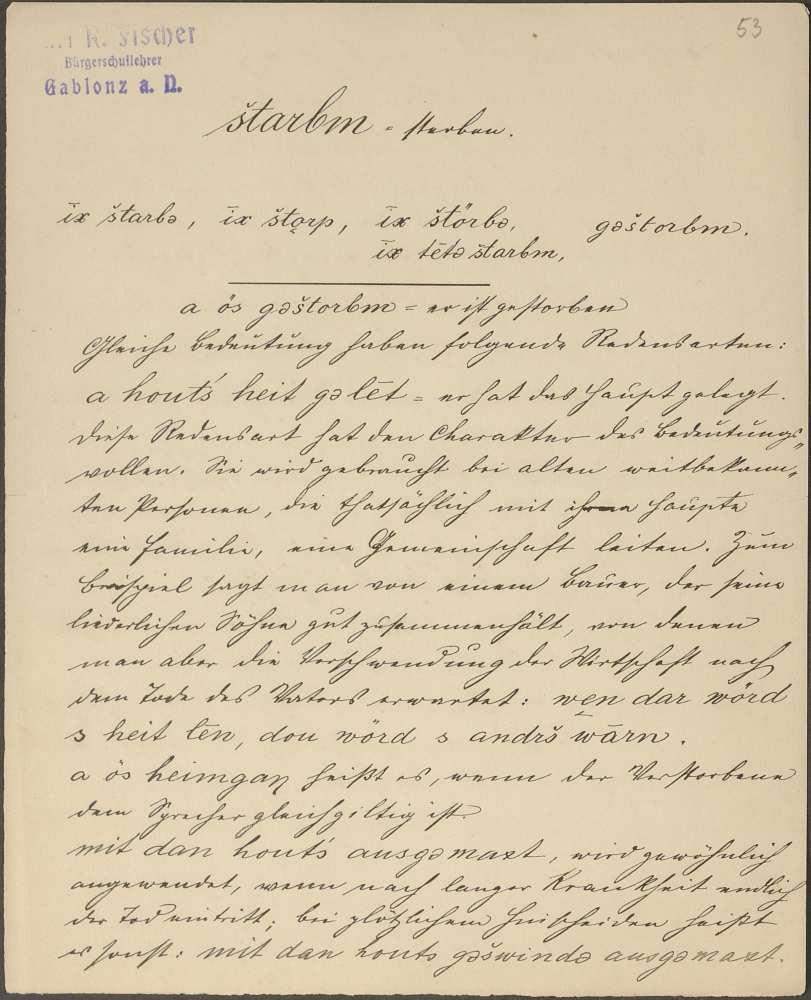 53
R. Fischer
Bürgerschullehrer
Gablonz a. N.
štarbm = sterben.
īx štarbə, īx štǫrp, īx štörbə, gəštorbm.
īx tētə štarbm,
a ös gəštorbm = er ist gestorben
Gleiche Bedeutung haben folgende Redensarten:
a hout's heit gəlēt = er hat das Haupt gelegt.
Diese Redensart hat den Charakter des Bedeutungs„
vollen. Sie wird gebraucht bei alten weitbekann„
ten Personen, die thatsächlich mit ihrem Haupte
eine Familie, eine Gemeinschaft leiten. Zum
Beispiel sagt man von einem Bauer, der seine
liederlichen Söhne gut zusammenhält, von denen
man aber die Verschwendung der Wirtschaft nach
dem Tode des Vaters erwartet: węn dar wörd
s heit lēn, dou wörd s andrš wārn.
a ös heimgaŋ heißt es, wenn der Verstorbene
dem Sprecher gleichgiltig ist.
mit dan hout's ausgəmaxt, wird gewöhnlich
angewendet, wenn nach langer Krankheit endlich
der Tod eintritt; bei plötzlichem Hinscheiden heißt
es sonst: mit dan houts gəšwində ausgəmaxt.